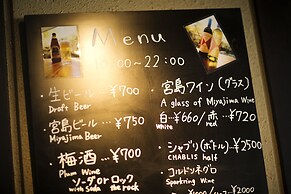 Menu
:00~22:00
・生ビール…¥700
Draft Beer
・宮島ビール…¥750
Miyajima Beer
・梅酒…¥700
Plum Wine
ソーダ or ロック
with Soda the rock
・宮島ワイン(グラス)
A glass of Miyajima Wine
白…¥660/赤…¥720
White red
・シャブリ(ボトル)…¥2500
CHABLIS half
・コルドンネグロ
Sparkring Wine